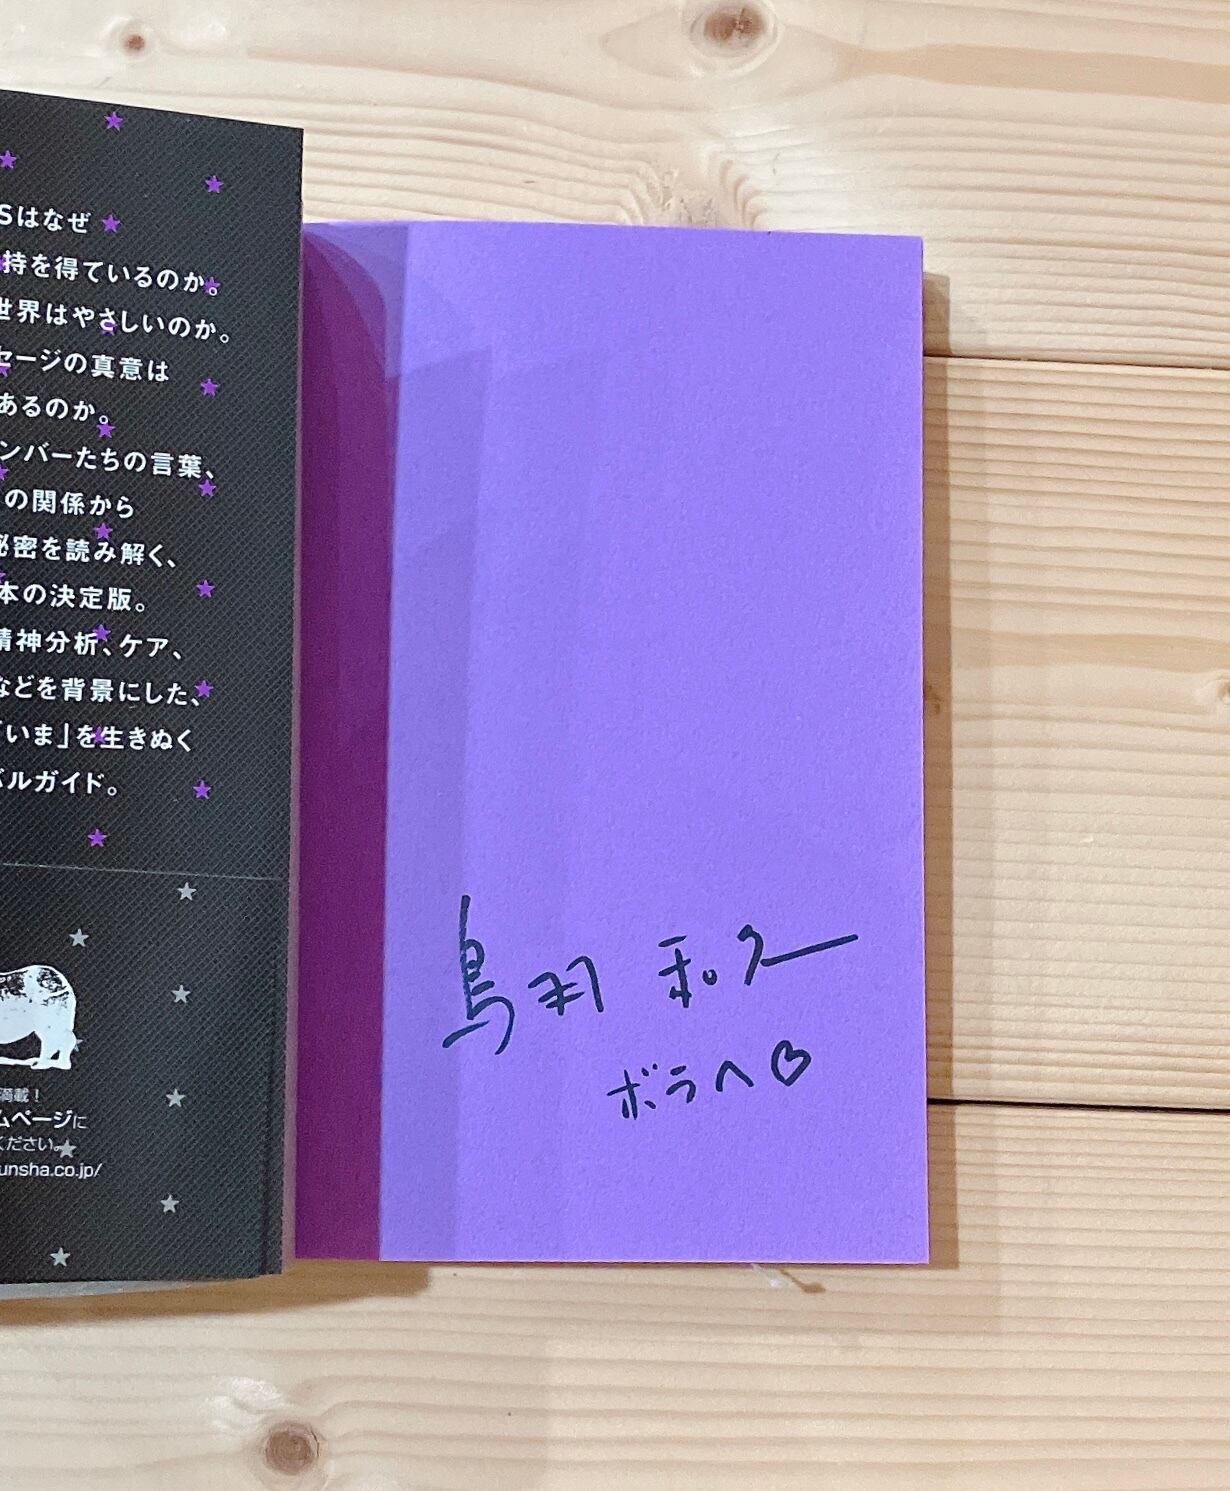 Sはなぜ
持を得ているのか。
世界はやさしいのか。
セージの真意は
あるのか。
ンバーたちの言葉、
の関係から
秘密を読み解く、
本の決定版。
精神分析、ケア、
などを背景にした、
「いま」を生きぬく
バルガイド。
満載!
ムページに
ください。
unsha.co.jp/
鳥羽 和久
ボラヘ♡